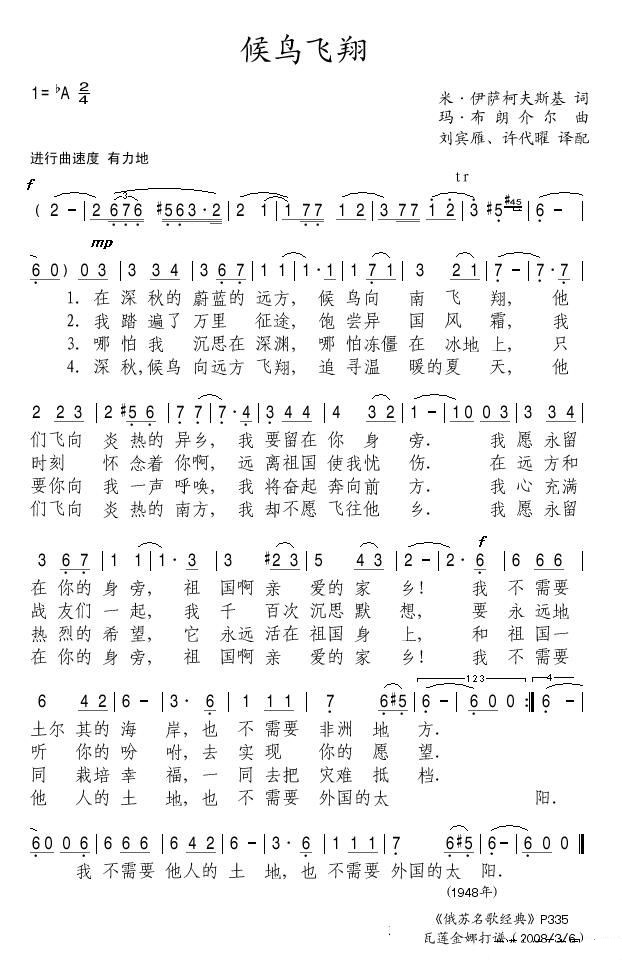 候鸟飞翔
1=♭A 2/4
米·伊萨柯夫斯基 词
玛·布朗介尔 曲
刘宾雁、许代曜 译配
进行曲速度 有力地
tr
f
3
( 2 - | 2 676 #563·2 | 2 1 | 1 77 12 | 3 77 12 | 3 #5 #45 | 6 - |
mp
60) 03 | 3 34 | 3 67 | 11 | 1·1 | 1 71 | 3 21 | 7 - | 7·7 |
1. 在深秋的蔚蓝的远方, 候鸟向南飞翔, 他
2. 我踏遍了万里征途, 饱尝异国风霜, 我
3. 哪怕我沉思在深渊, 哪怕冻僵在冰地上, 只
4. 深秋,候鸟向远方飞翔, 追寻温暖的夏天, 他
2 23 | 2 #56 | 77 | 7·4 | 3 44 | 4 32 | 1 - | 10 03 | 3 34 |
们飞向炎热的异乡, 我要留在你身旁. 我愿永留
时刻怀念着你啊, 远离祖国使我忧伤. 在远方和
要你向我一声呼唤, 我将奋起奔向前方. 我心充满
们飞向炎热的南方, 我却不愿飞往他乡. 我愿永留
f
3 67 | 1 1 | 1·3 | 3 #23 | 5 43 | 2 - | 2·6 | 6 66 |
在你的身旁, 祖国啊亲爱的家乡! 我不需要
战友们一起, 我千百次沉思默想, 要永远地
热烈的希望, 它永远活在祖国身上, 和祖国一
在你的身旁, 祖国啊亲爱的家乡! 我不需要
123 4
6 42 | 6 - | 3·6 | 1 11 | 7 6#5 | 6 - | 600 :| 6 - |
土尔其的海岸, 也不需要非洲地方.
听你的吩咐, 去实现你的愿望.
同栽培幸福, 一同去把灾难抵档.
他人的土地, 也不需要外国的太阳.
60 06 | 6 66 | 6 42 | 6 - | 3·6 | 1 11 | 7 6#5 | 6 - | 600 ||
我不需要他人的土地, 也不需要外国的太阳.
(1948年)
《俄苏名歌经典》P335
瓦莲金娜打谱（2008/3/6）